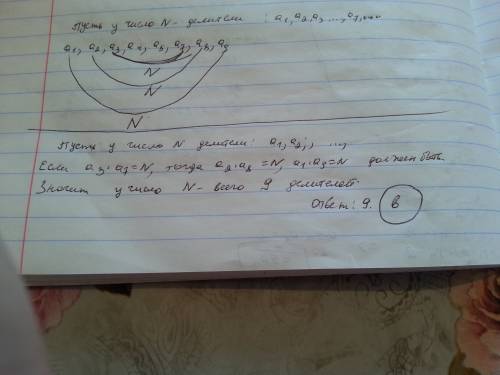 Пусть у число N- делители : a₁, a₂, a₃, ..., a₇, ...
a₁, a₂, a₃, a₄, a₅, a₇, a₈, a₉
N
N
N
Пусть у число N делители: a₁, a₂, ; ...,
Если a₃·a₇=N, тогда a₂·a₈=N, a₁·a₉=N должен быть.
Значит у число N- всего 9 делителей
Ответ: 9. В